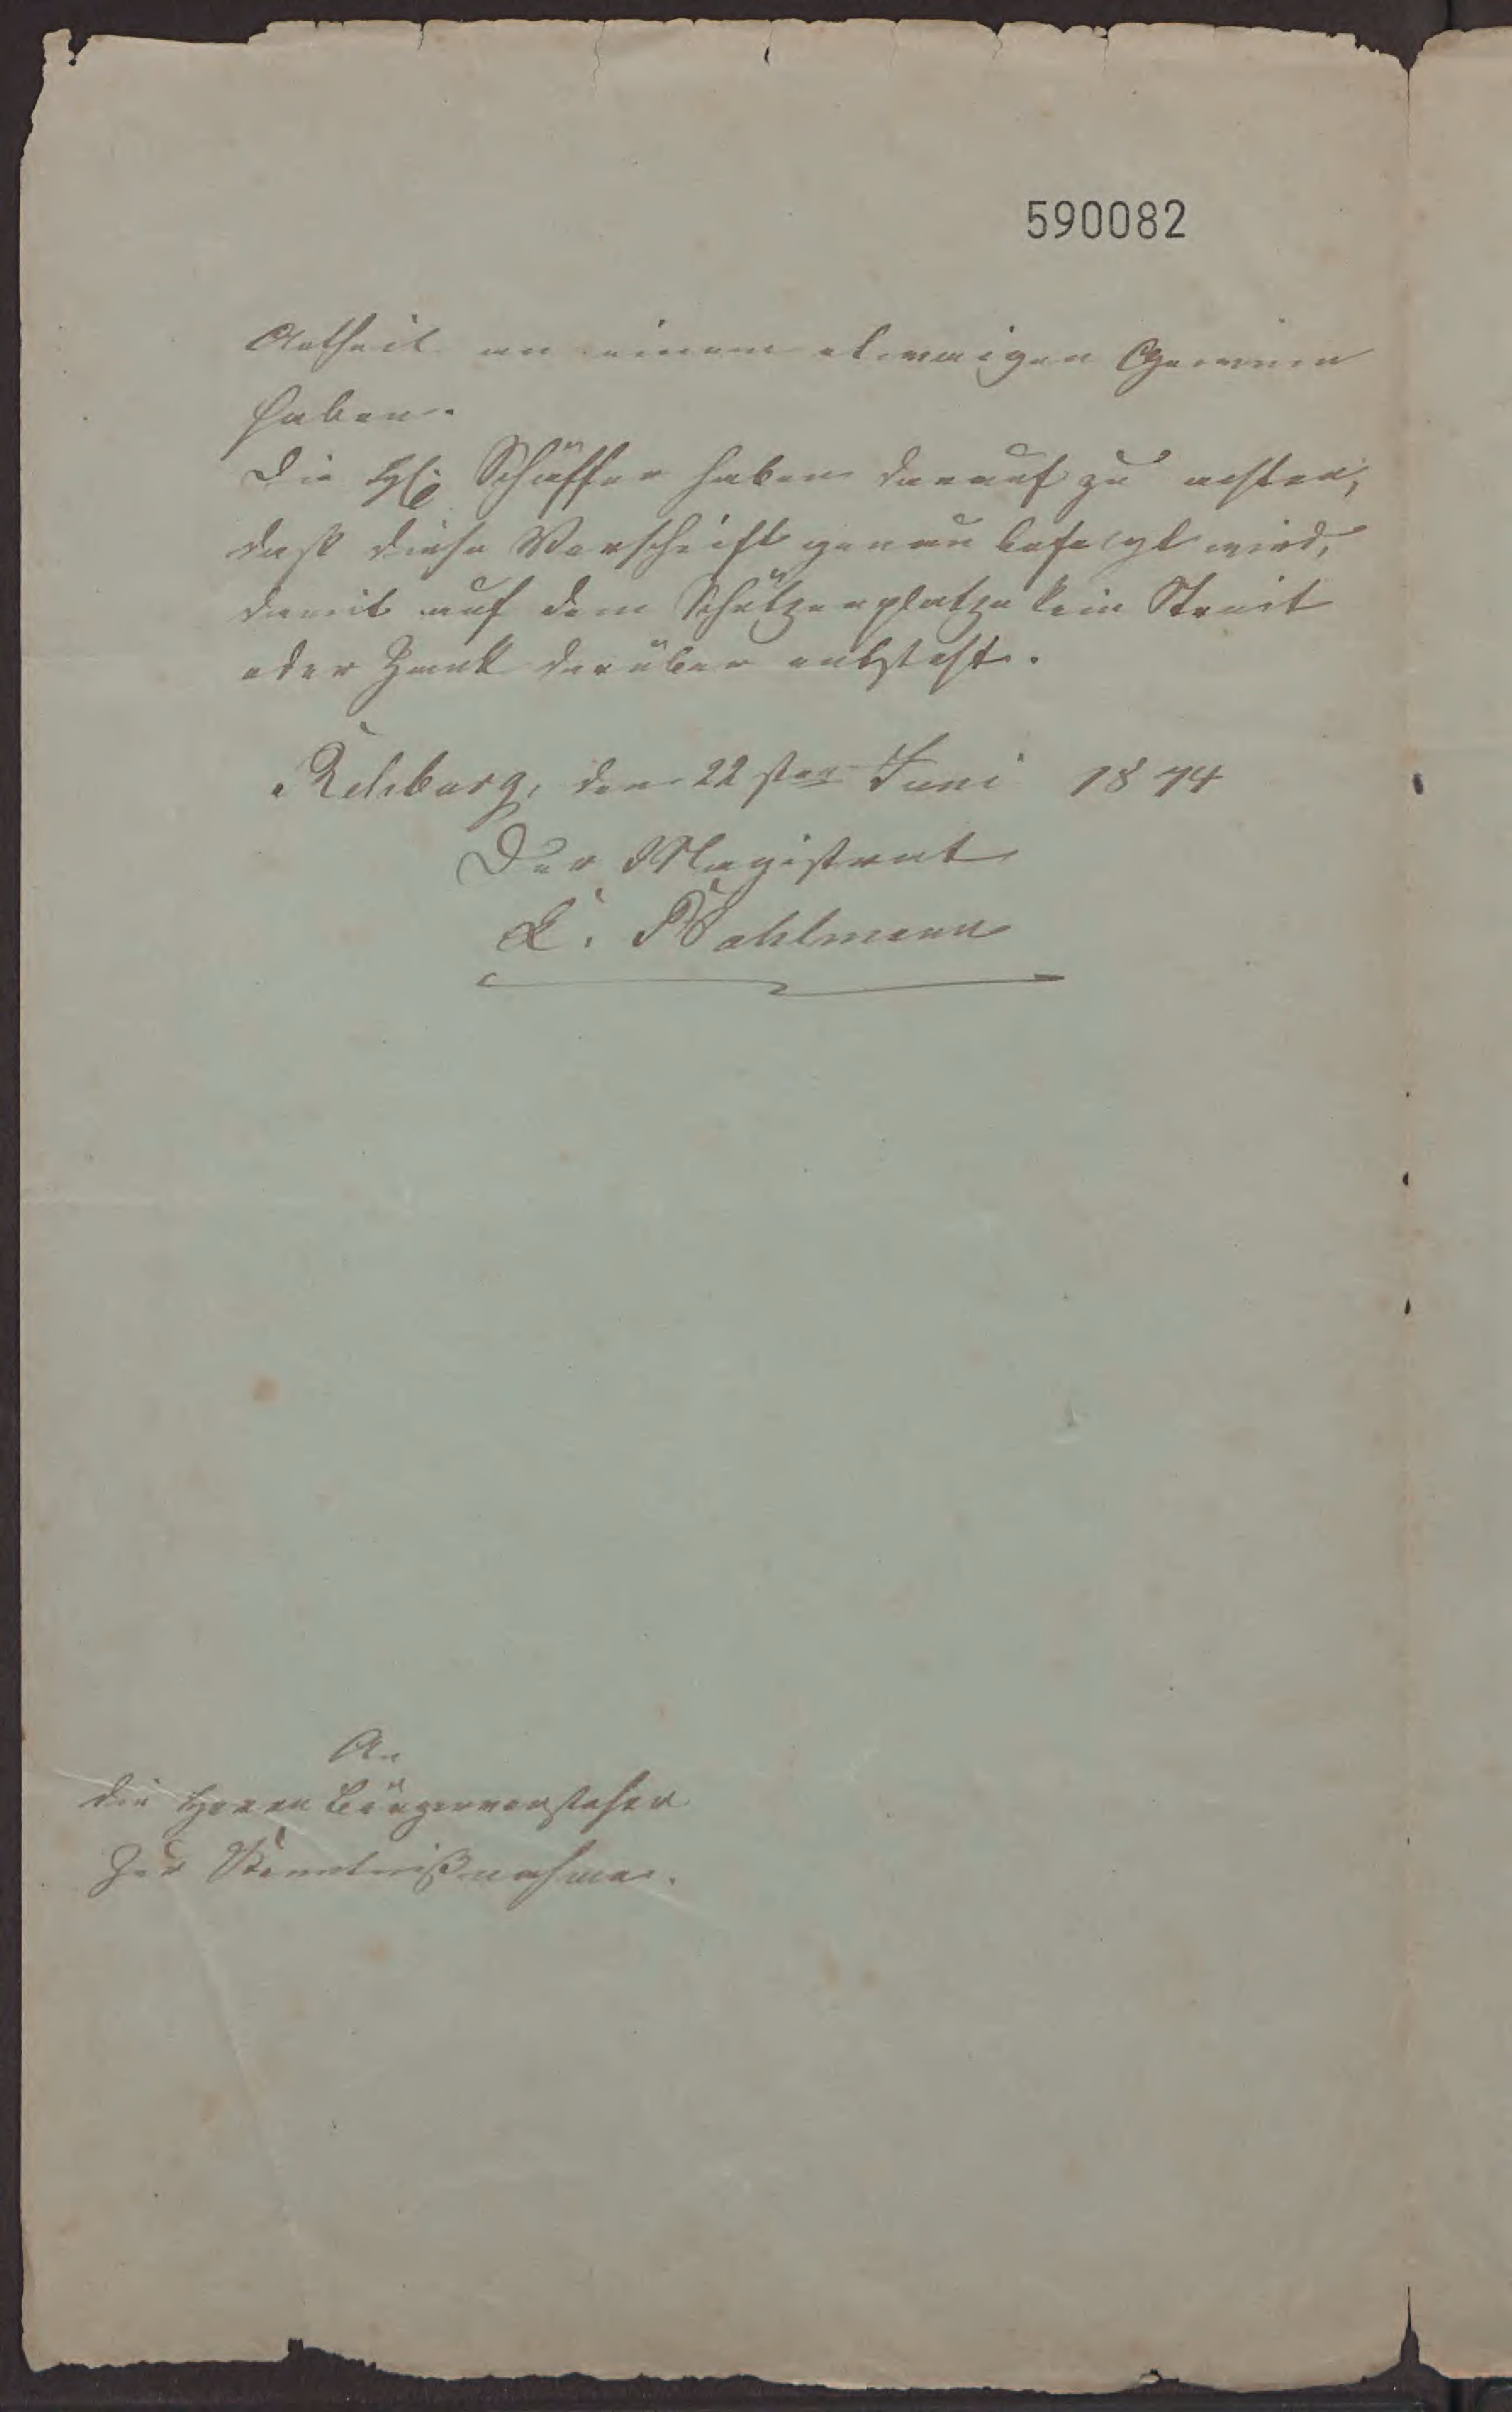 590082
Antheil an einem etwaigen Gewinn
haben.
Die Schäffer haben darauf zu achten,
daß diese Vorschrift genau befolgt wird,
damit auf dem Schützenplatze kein Streit
oder Zank darüber entsteht.
Rehburg, den 22sten Juni 1874
Der Magistrat
Mahlmann
An
die Herren Bürgervorsteher
zur Kenntnißnahme.